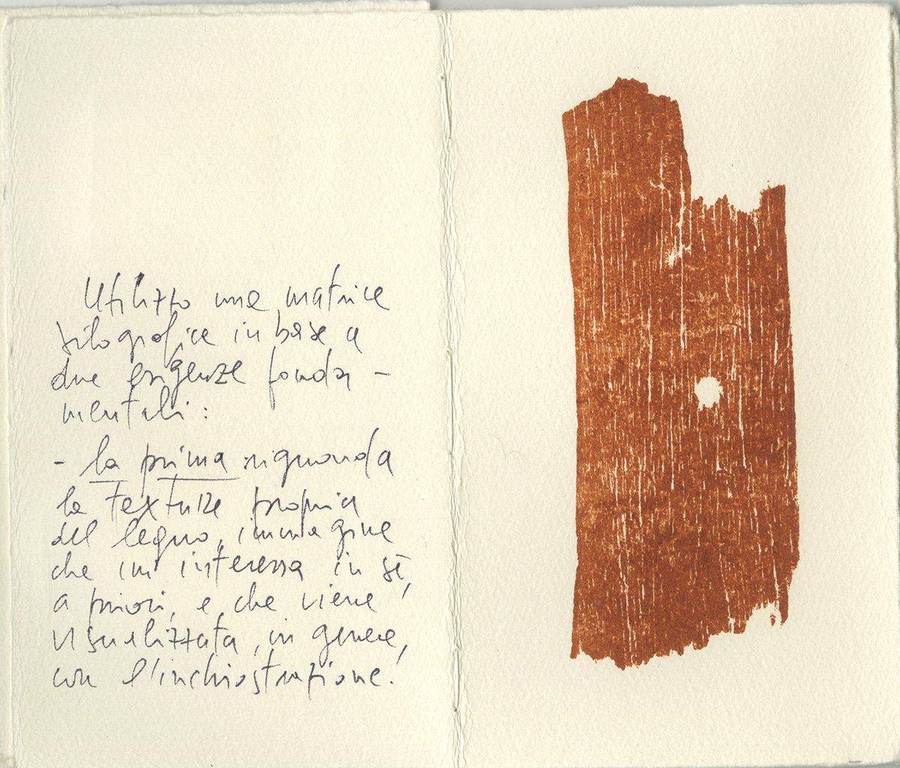 Utilizzo una matrice
xilografica in base a
due esigenze fonda-
mentali:
- la prima riguarda
la texture propria
del legno, immagine
che mi interessa in sé,
a priori, e che viene
visualizzata, in genere,
con l'inchiostrazione.